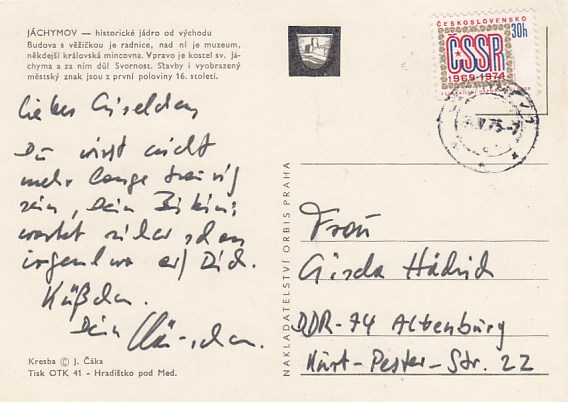 JÁCHYMOV — historické jádro od východu
Budova s věžičkou je radnice, nad ní je muzeum,
někdejší královská mincovna. Vpravo je kostel sv. Já-
chyma a za ním důl Svornost. Stavby i vyobrazený
městský znak jsou z první poloviny 16. století.
Liebes Giselchen,
Du wirst nicht
mehr lange traurig
sein, Dein Bikini
wartet sicher schon
irgendwo auf Dich.
Küßchen.
Dein
Kresba © J. Čáka
Tisk OTK 41 - Hradištko pod Med.
NAKLADATELSTVÍ ORBIS PRAHA
ČESKOSLOVENSKO
30h
ČSSR
1969-1974
75-7
Frau
Gisela Hädrich
DDR-74 Altenburg
Kürt-Pester-Str. 22